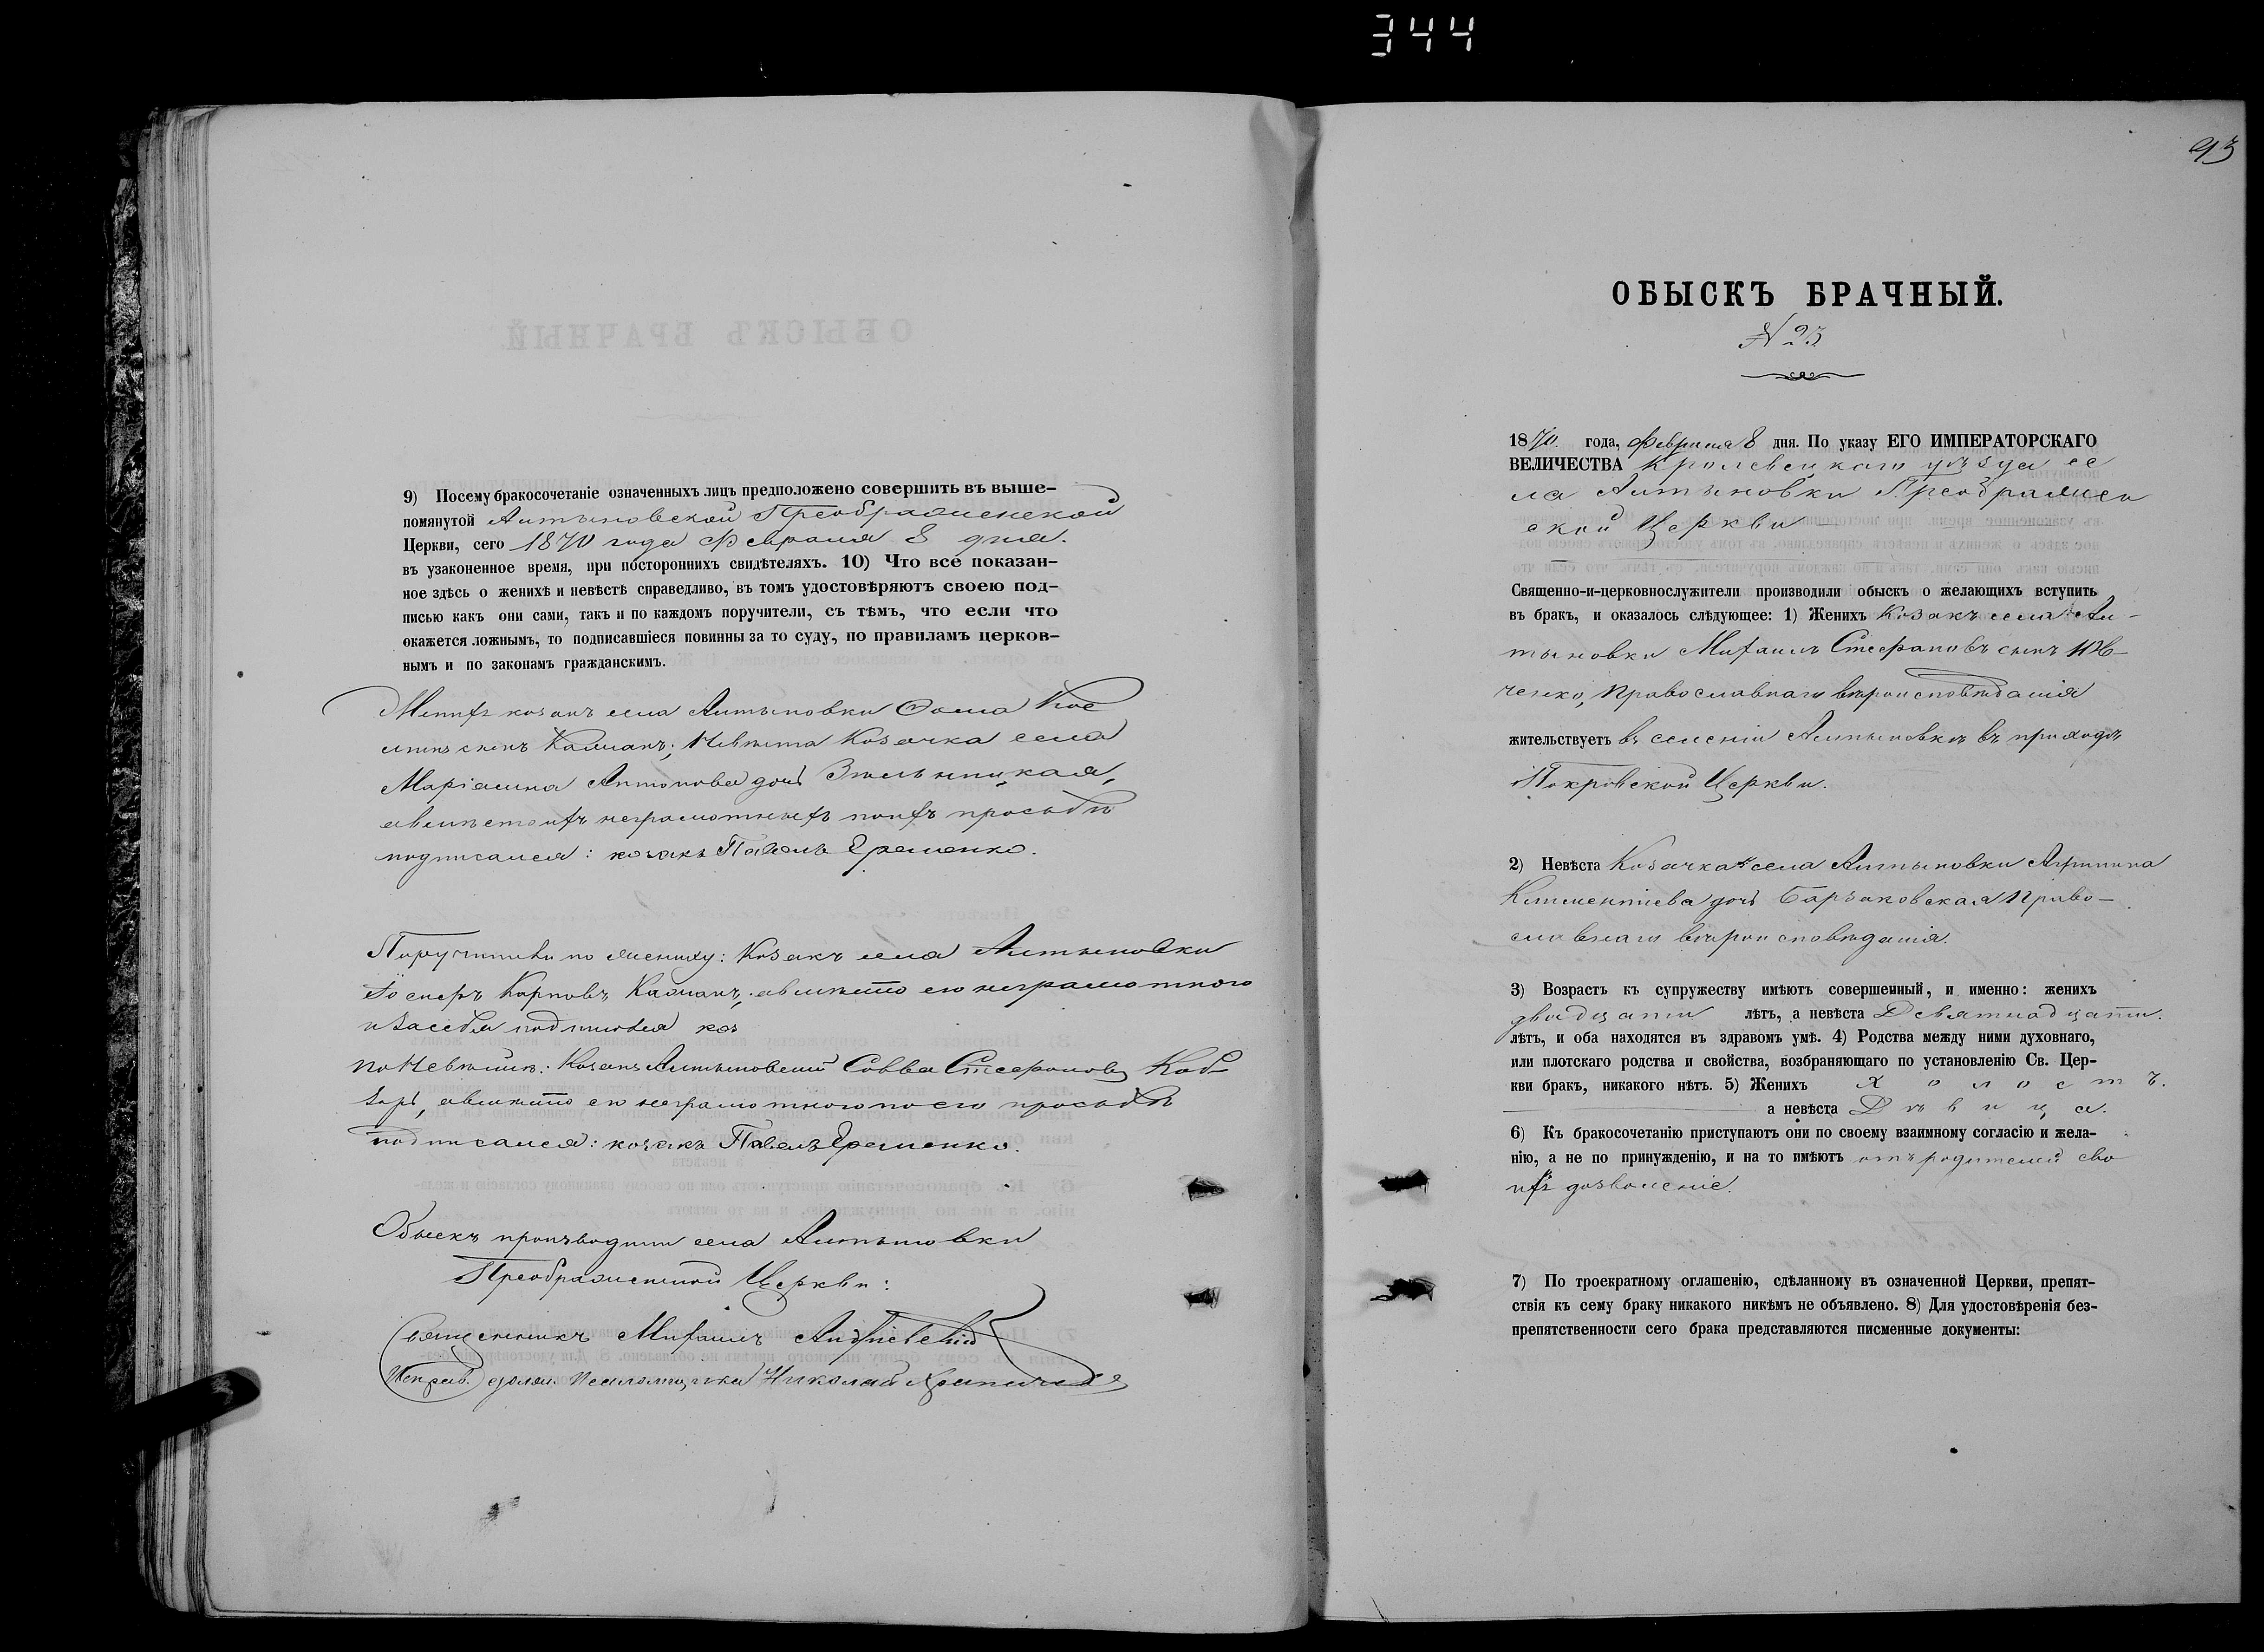 344
9) Посему бракосочетаніе означенныхъ лицъ предположено совершить въ выше-
помянутой Алтыновской Преображенской
Церкви, сего 1870 года Февраля 8 дня.
въ узаконенное время, при постороннихъ свидѣтеляхъ. 10) Что все показан-
ное здѣсь о женихѣ и невѣстѣ справедливо, въ томъ удостовѣряютъ своею под-
писью какъ они сами, такъ и по каждомъ поручители, съ тѣмъ, что если что
окажется ложнымъ, то подписавшіеся повинны за то суду, по правиламъ церков-
нымъ и по законамъ гражданскимъ.
козакъ села Алтыновки Фома
сынъ Невѣста Козачка села
Маріамна Антонова дочь
неграмотныхъ поихъ просьбѣ
подписался: козакъ Павелъ Еременко.
Поручители по жениху: Козакъ села Алтыновки
Карповъ его неграмотного
по Невѣстѣ: Козакъ Алтыновский Савва Стефановъ Коб-
зарь, авмѣсто его неграмотного по его просьбѣ
подписался: козакъ Павелъ Еременко.
Обыскъ производили села Алтыновки
Преображенской Церкви:
Священникъ Михаилъ Андріевскій
Николай
93
ОБЫСКЪ БРАЧНЫЙ.
N 23
1870 года, Февраля 8 дня. По указу ЕГО ИМПЕРАТОРСКАГО
ВЕЛИЧЕСТВА Кролевецкаго уѣзда се
ла Алтыновки Преображен
ской Церкви
Священно-и-церковнослужители производили обыскъ о желающихъ вступить
въ бракъ, и оказалось слѣдующее: 1) Женихъ Козакъ села Ал-
тыновки Михаилъ Стефановъ сынъ Ив-
ченко, Православнаго вѣроисповѣданія
жительствуетъ въ селеніи Алтыновкѣ въ приходѣ
Покровской Церкви.
2) Невѣста Козачка села Алтыновки Агрипина
Климентіева дочь Барзаковская Право-
славнаго вѣроисповѣданія.
3) Возрастъ къ супружеству имѣютъ совершенный, и именно: женихъ
двадцати лѣтъ, а невѣста Девятнадцати.
лѣтъ, и оба находятся въ здравомъ умѣ. 4) Родства между ними духовнаго,
или плотскаго родства и свойства, возбраняющаго по установленію Св. Цер-
кви бракъ, никакого нѣтъ. 5) Женихъ холостъ.
а невѣста Дѣвица.
6) Къ бракосочетанію приступаютъ они по своему взаимному согласію и жела-
нію, а не по принужденію, и на то имѣютъ отъ родителей сво
ихъ дозволеніе.
7) По троекратному оглашенію, сдѣланному въ означенной Церкви, препят-
ствія къ сему браку никакого никѣмъ не объявлено. 8) Для удостовѣренія без-
препятственности сего брака представляются писменные документы: